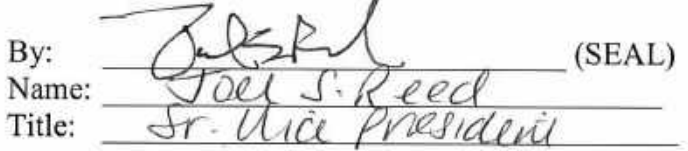 By: (SEAL)
Name: Joel S. Reed
Title: Sr. Vice President